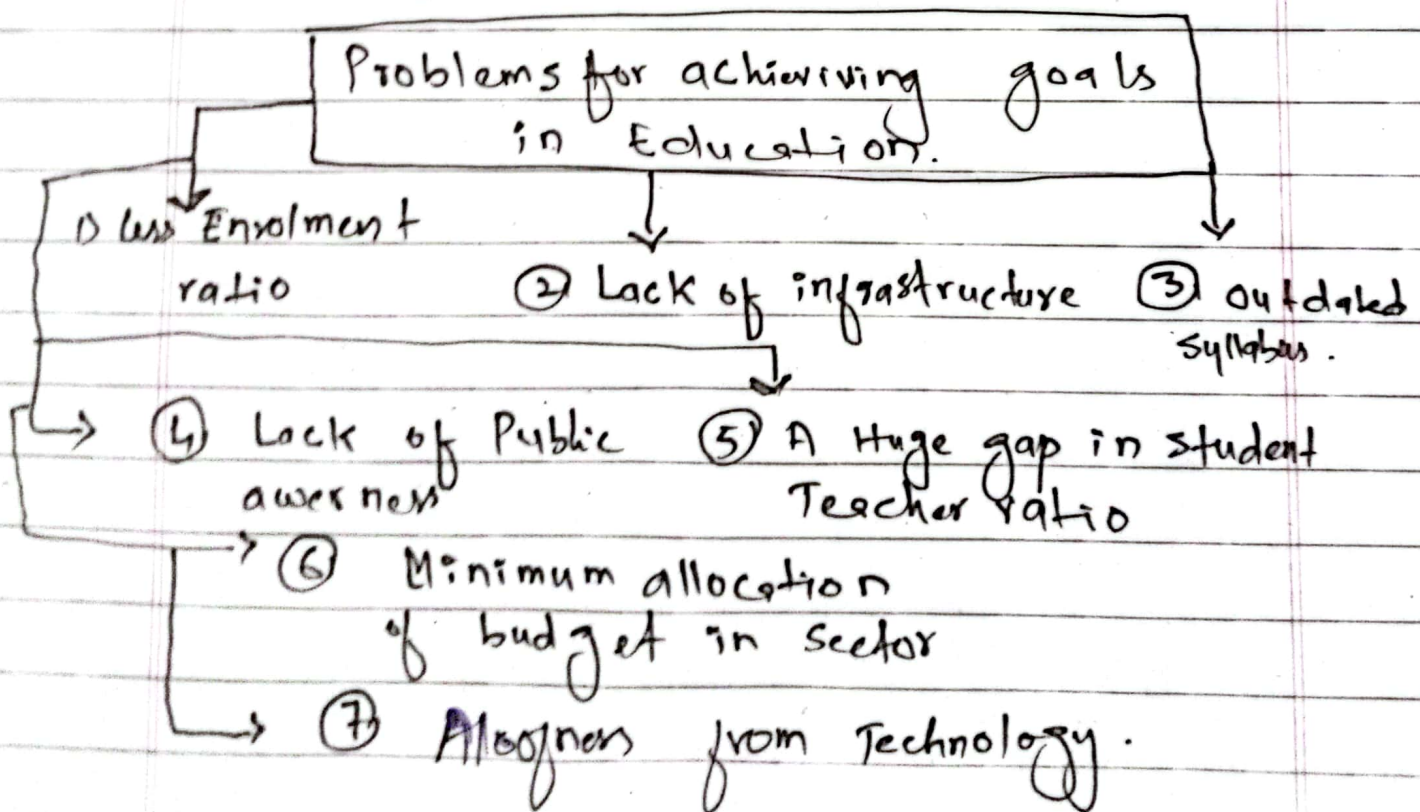 Problems for achieviving goals
in Education.
1) less Enrolment
ratio
② Lack of infrastructure
③ outdated
syllabus.
④ Lack of Public
awerness
⑤ A Huge gap in student
Teacher ratio
⑥ Minimum allocation
of budget in sector
⑦ Aloofness from Technology.